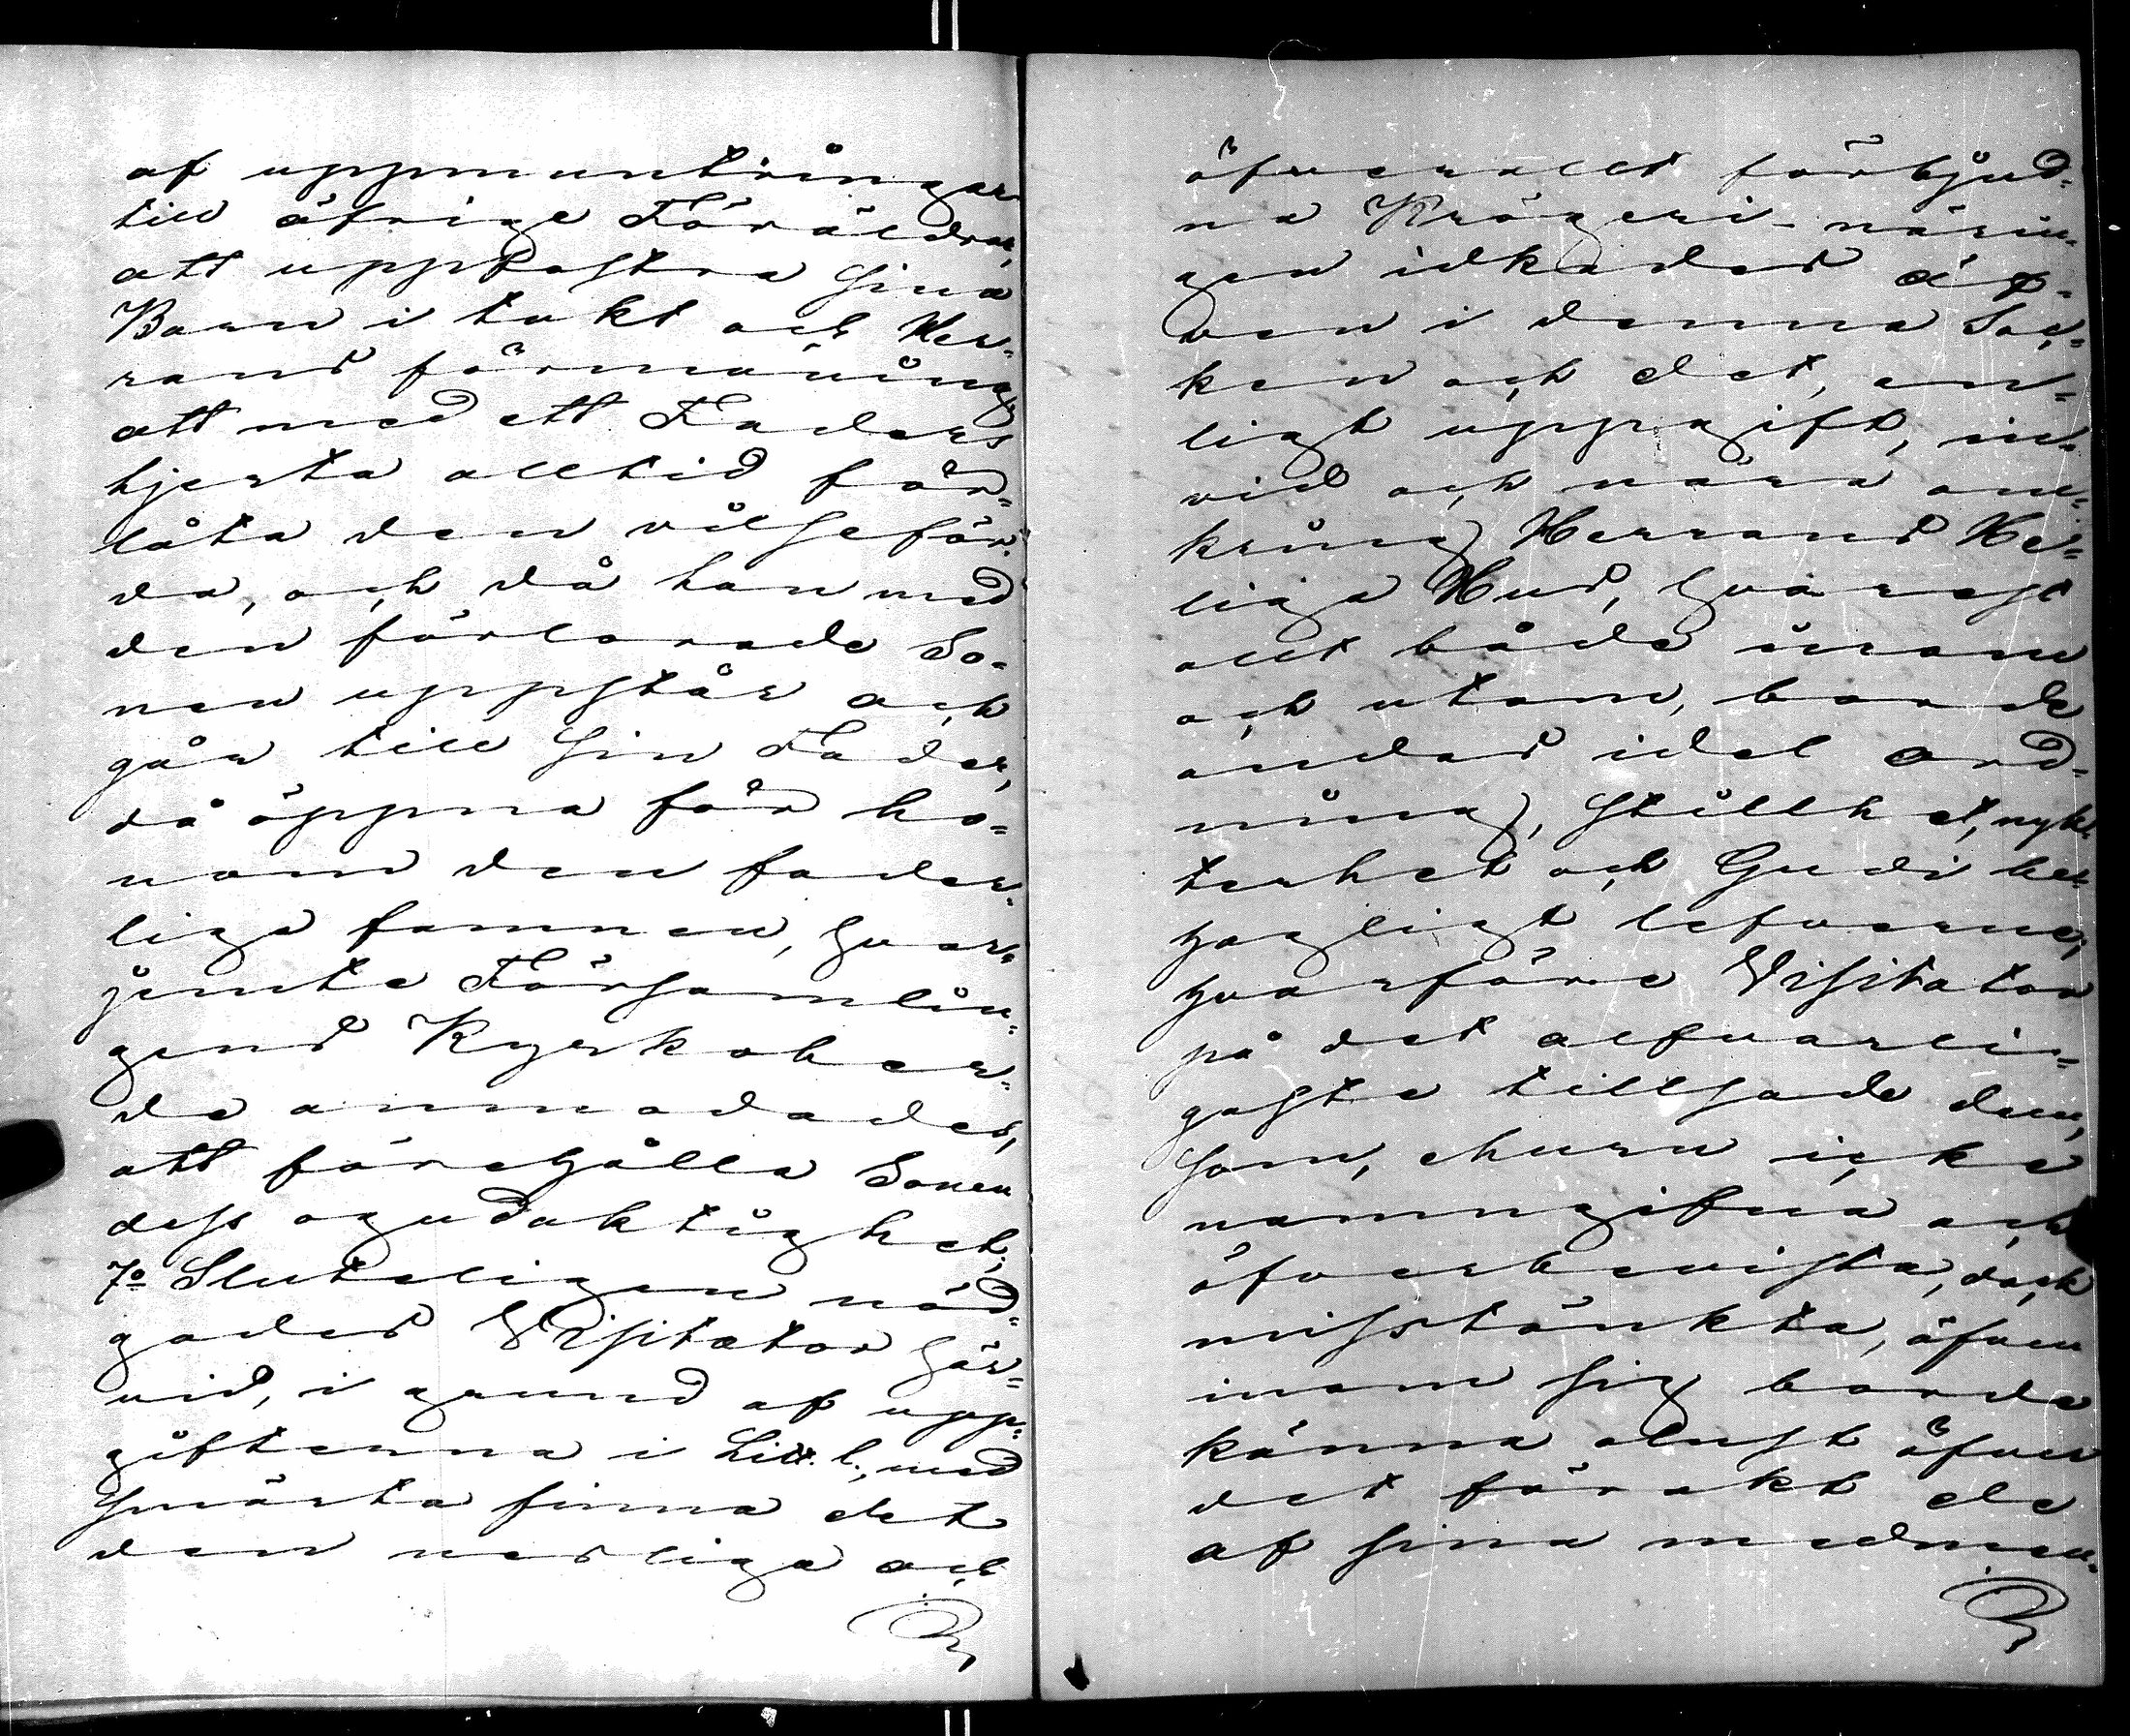 af uppmuntringar
till öfrige Föräldrar,
att uppfostra sina
Barn i tukt och Her-
rans förmaning
att med ett Faders
hjerta alltid för-
låta den vilseför-
da, och då han med
den förlorade So-
nen uppstår och
går till sin Fader,
då öppna för ho-
nom den fader-
liga famnen, hvar-
jemte Församlin-
gens Kyrkoher-
de anmodades,
att förehålla Sonen
dess ogudaktighet;
7o Sluteligen nöd-
gades Visitator här-
vid, i grund af upp-
gifterna i Litt. l., med
smärta finna det
den usliga och
öfverallt förbjud-
na Krögeri-närin-
gen idkades äf-
ven i denna Soc-
ken och det, en-
ligt uppgift, in-
vid och nära om-
kring Herrans He-
liga Hus, hvarest
allt både inom
och utom, borde
andas idel ord-
ning, stillhet, nyk-
terhet och Gudi be-
hagligt lefverne;
hvarföre Visitator
på det alfvarli-
gaste tillsade dem,
som, ehuru icke
namngifna och
öfverbevista, dock
misstänkta, äfven
inom sig borde
känna olust öfver
det förakt de
af sina medmen-